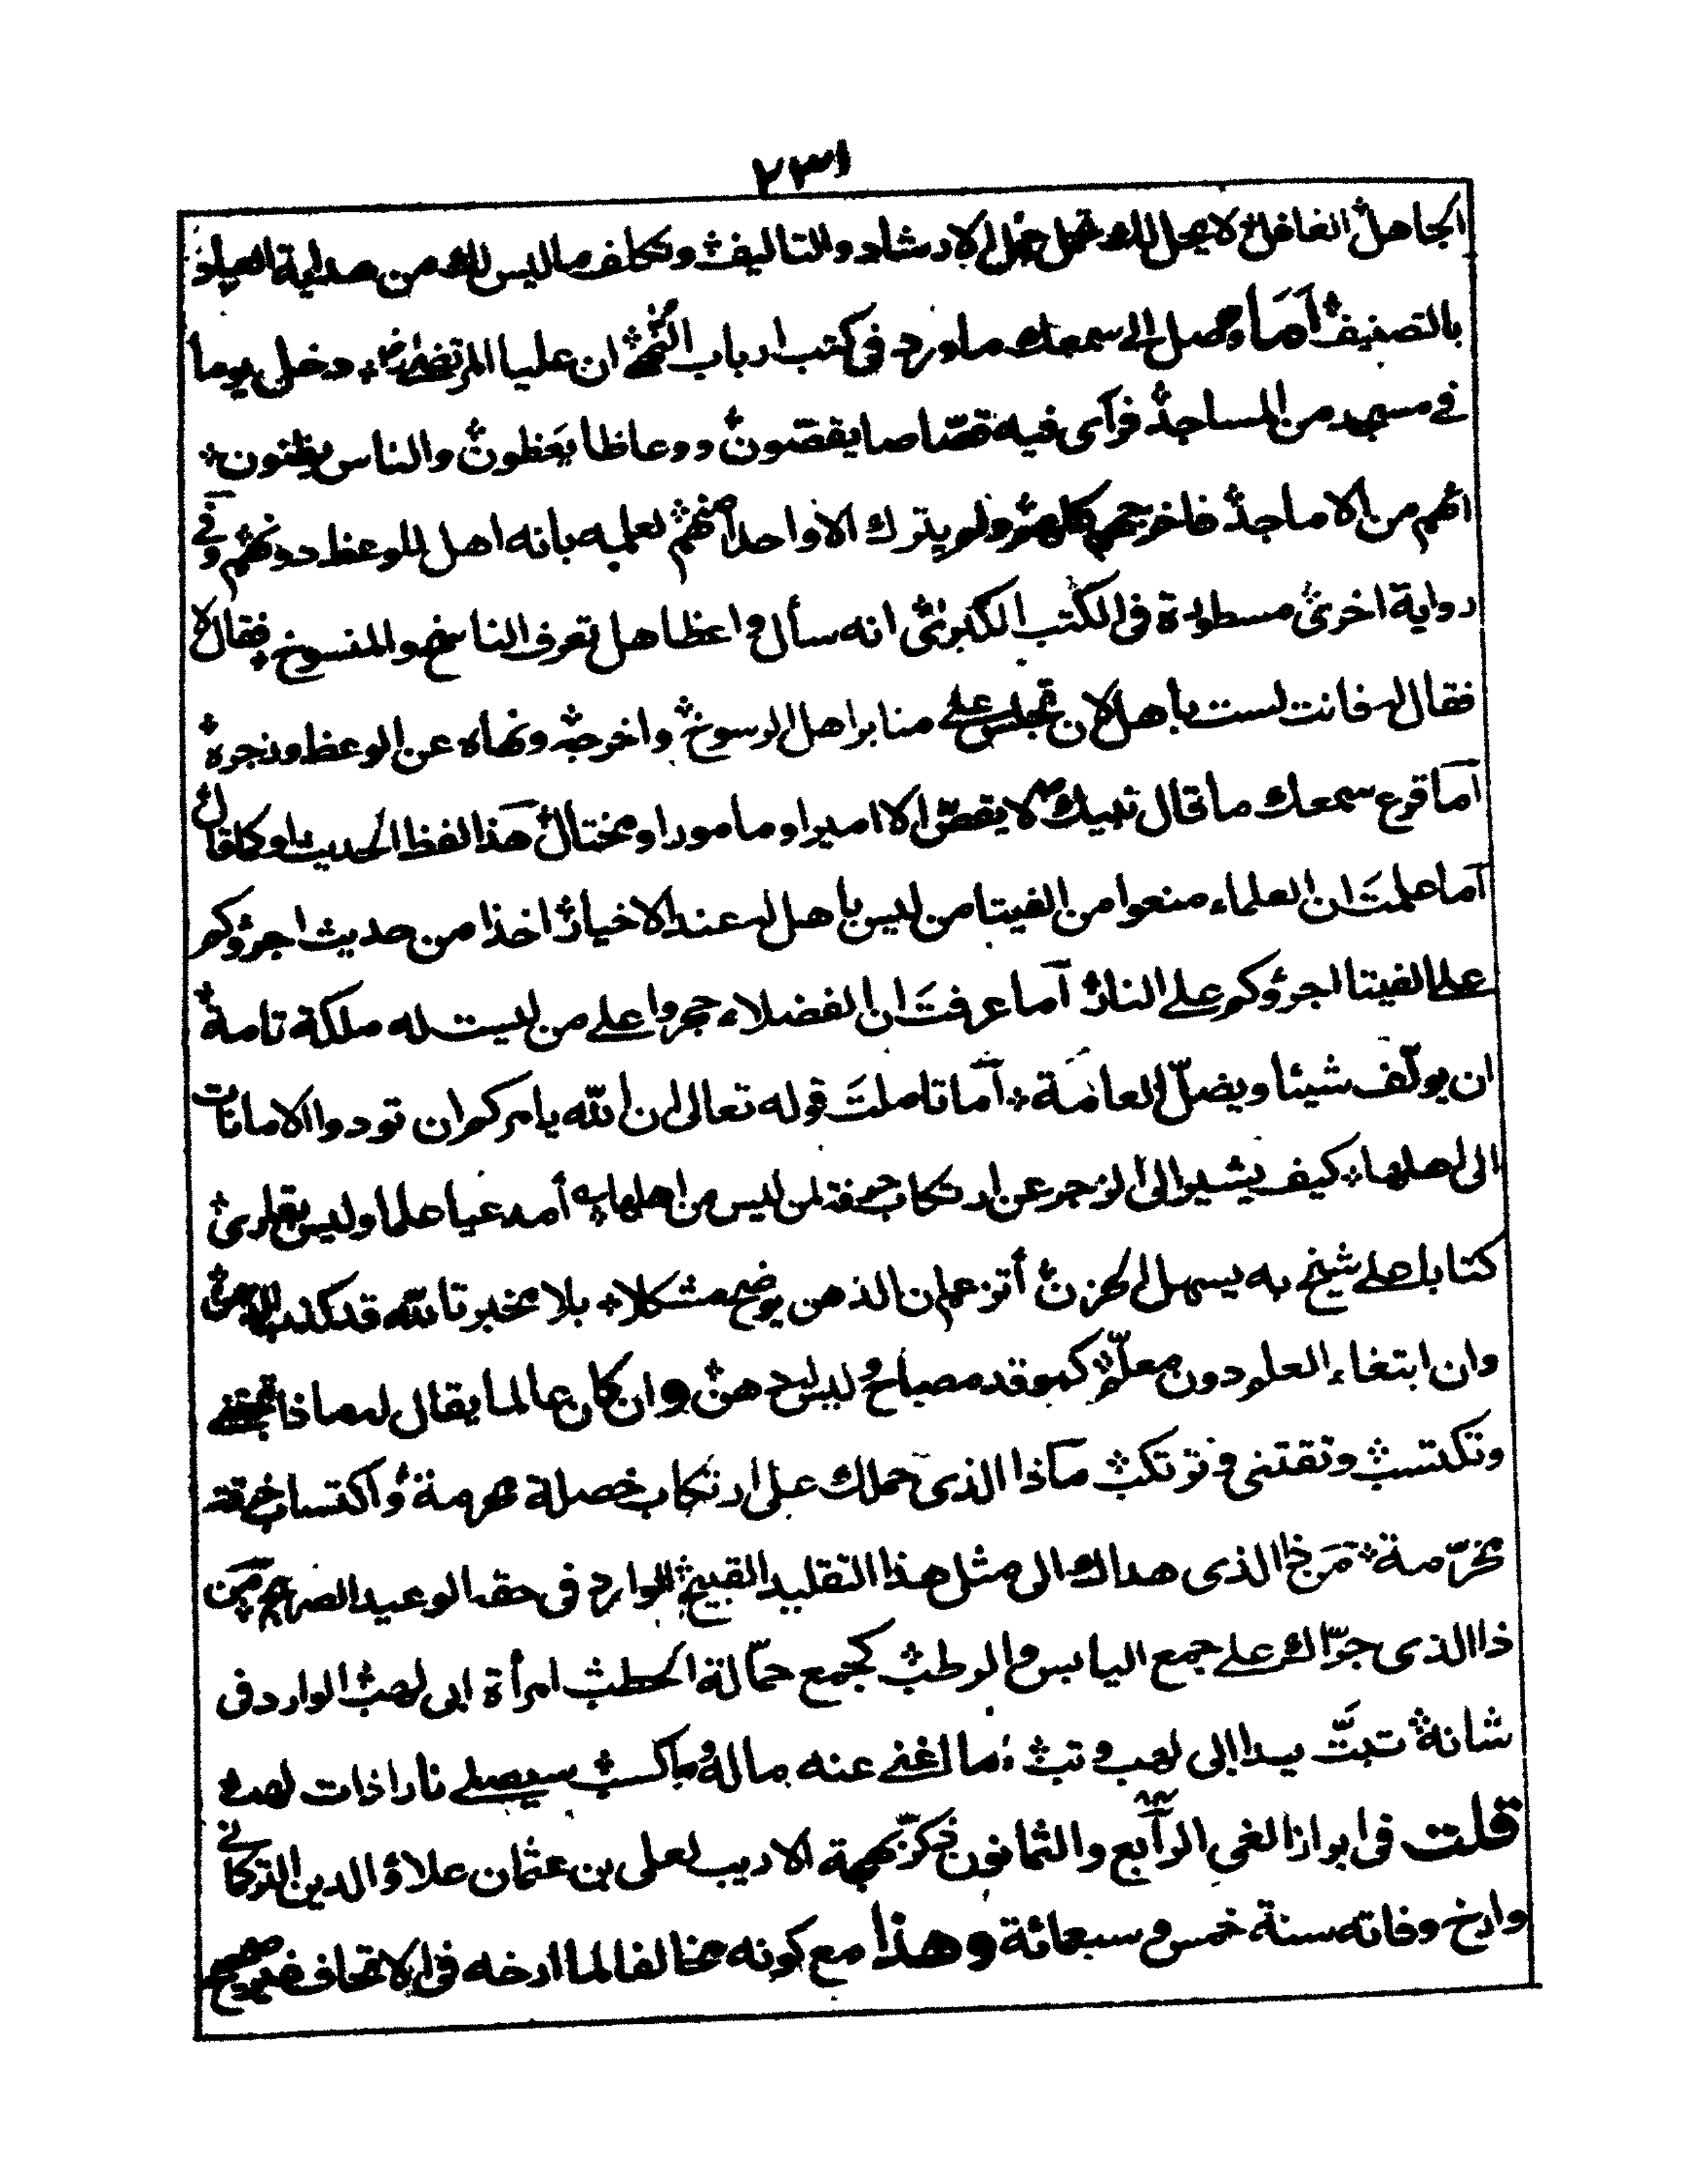 ٢٣١
الجاهل الغافل لا يحل لك تحمل حمل الارشاد والتاليف وتكلف ما ليس لك من هداية العباد
بالتصنيف أما وصل الى سمعك ما ورد فى كتب ارباب ان عليا المرتضى رض دخل يوما
فى مسجد من المساجد فرآى فيه قصّاصا يقصّون ووعاظا يَعَظون والناس يظنون
انهم من الاماجد فاخرجهم كلهم ولم يترك الا واحدا منهم لعلمه بانه اهل للوعظ دونهم وفى
رواية اخرى مسطورة فى الكتب الكبرى انه سأل واعظا هل تعرف الناسخ والمنسوخ فقال لا
فقال له فانت لست باهل لان تجلس على منابر اهل الرسوخ واخرجه ونهاه عن الوعظ وزجره
آما قرع سمعك ما قال نبيك ص لا يقصّ الا امير او مامور او مختال هذا لفظ الحديث او كما قال
آما علمتَ ان العلماء منعوا من الفيتا من ليس باهل له عند الاخيار اخذا من حديث اجرؤكم
على الفيتا اجرؤكم على النار آما عرفتَ ان الفضلاء حجروا على من ليست له ملكة تامة
ان يولّف شيئا ويضلّ العامّة آما تاملتَ قوله تعالى ان الله يامركم ان تودوا الامانات
الى اهلها كيف يشير الى الزجر عن ارتكاب حرفة لمن ليس من اهلها أمدعيا علما وليس بقارئ
كتابا على شيخ به يسهل الحزن أتزعم ان الذهن يوضح مشكلا بلا مخبر تالله قد كذب الذهن
وان ابتغاء العلم دون معلّم كموقد مصباح وليس له دهن وان كان عالما يقال له ماذا تجتنى
وتكتسب وتقتنى وترتكب ماذا الذى حملك على ارتكاب خصلة محرمة واكتساب حرفة
مخرّمة مَن ذا الذى هداك الى مثل هذا التقليد القبيح الوارد فى حقه الوعيد الصريح مَن
ذا الذى جرّاك على جمع اليابس والرطب كجمع حمّالة الحطب امرأة ابى لهب الوارد فى
شانه تبتّ يدا ابى لهب وتب ما اغنى عنه ماله وما كسب سيصلى نارا ذات لهب
قلت فى ابراز الغى الرآبع والثمانون ذكر بهجة الاريب لعلى بن عثمان علاؤ الدين التركمانى
وارخ وفاته سنة خمس وسبعمائة وهذا مع كونه مخالفا لما ارخه فى الاتحاف غير صحيح